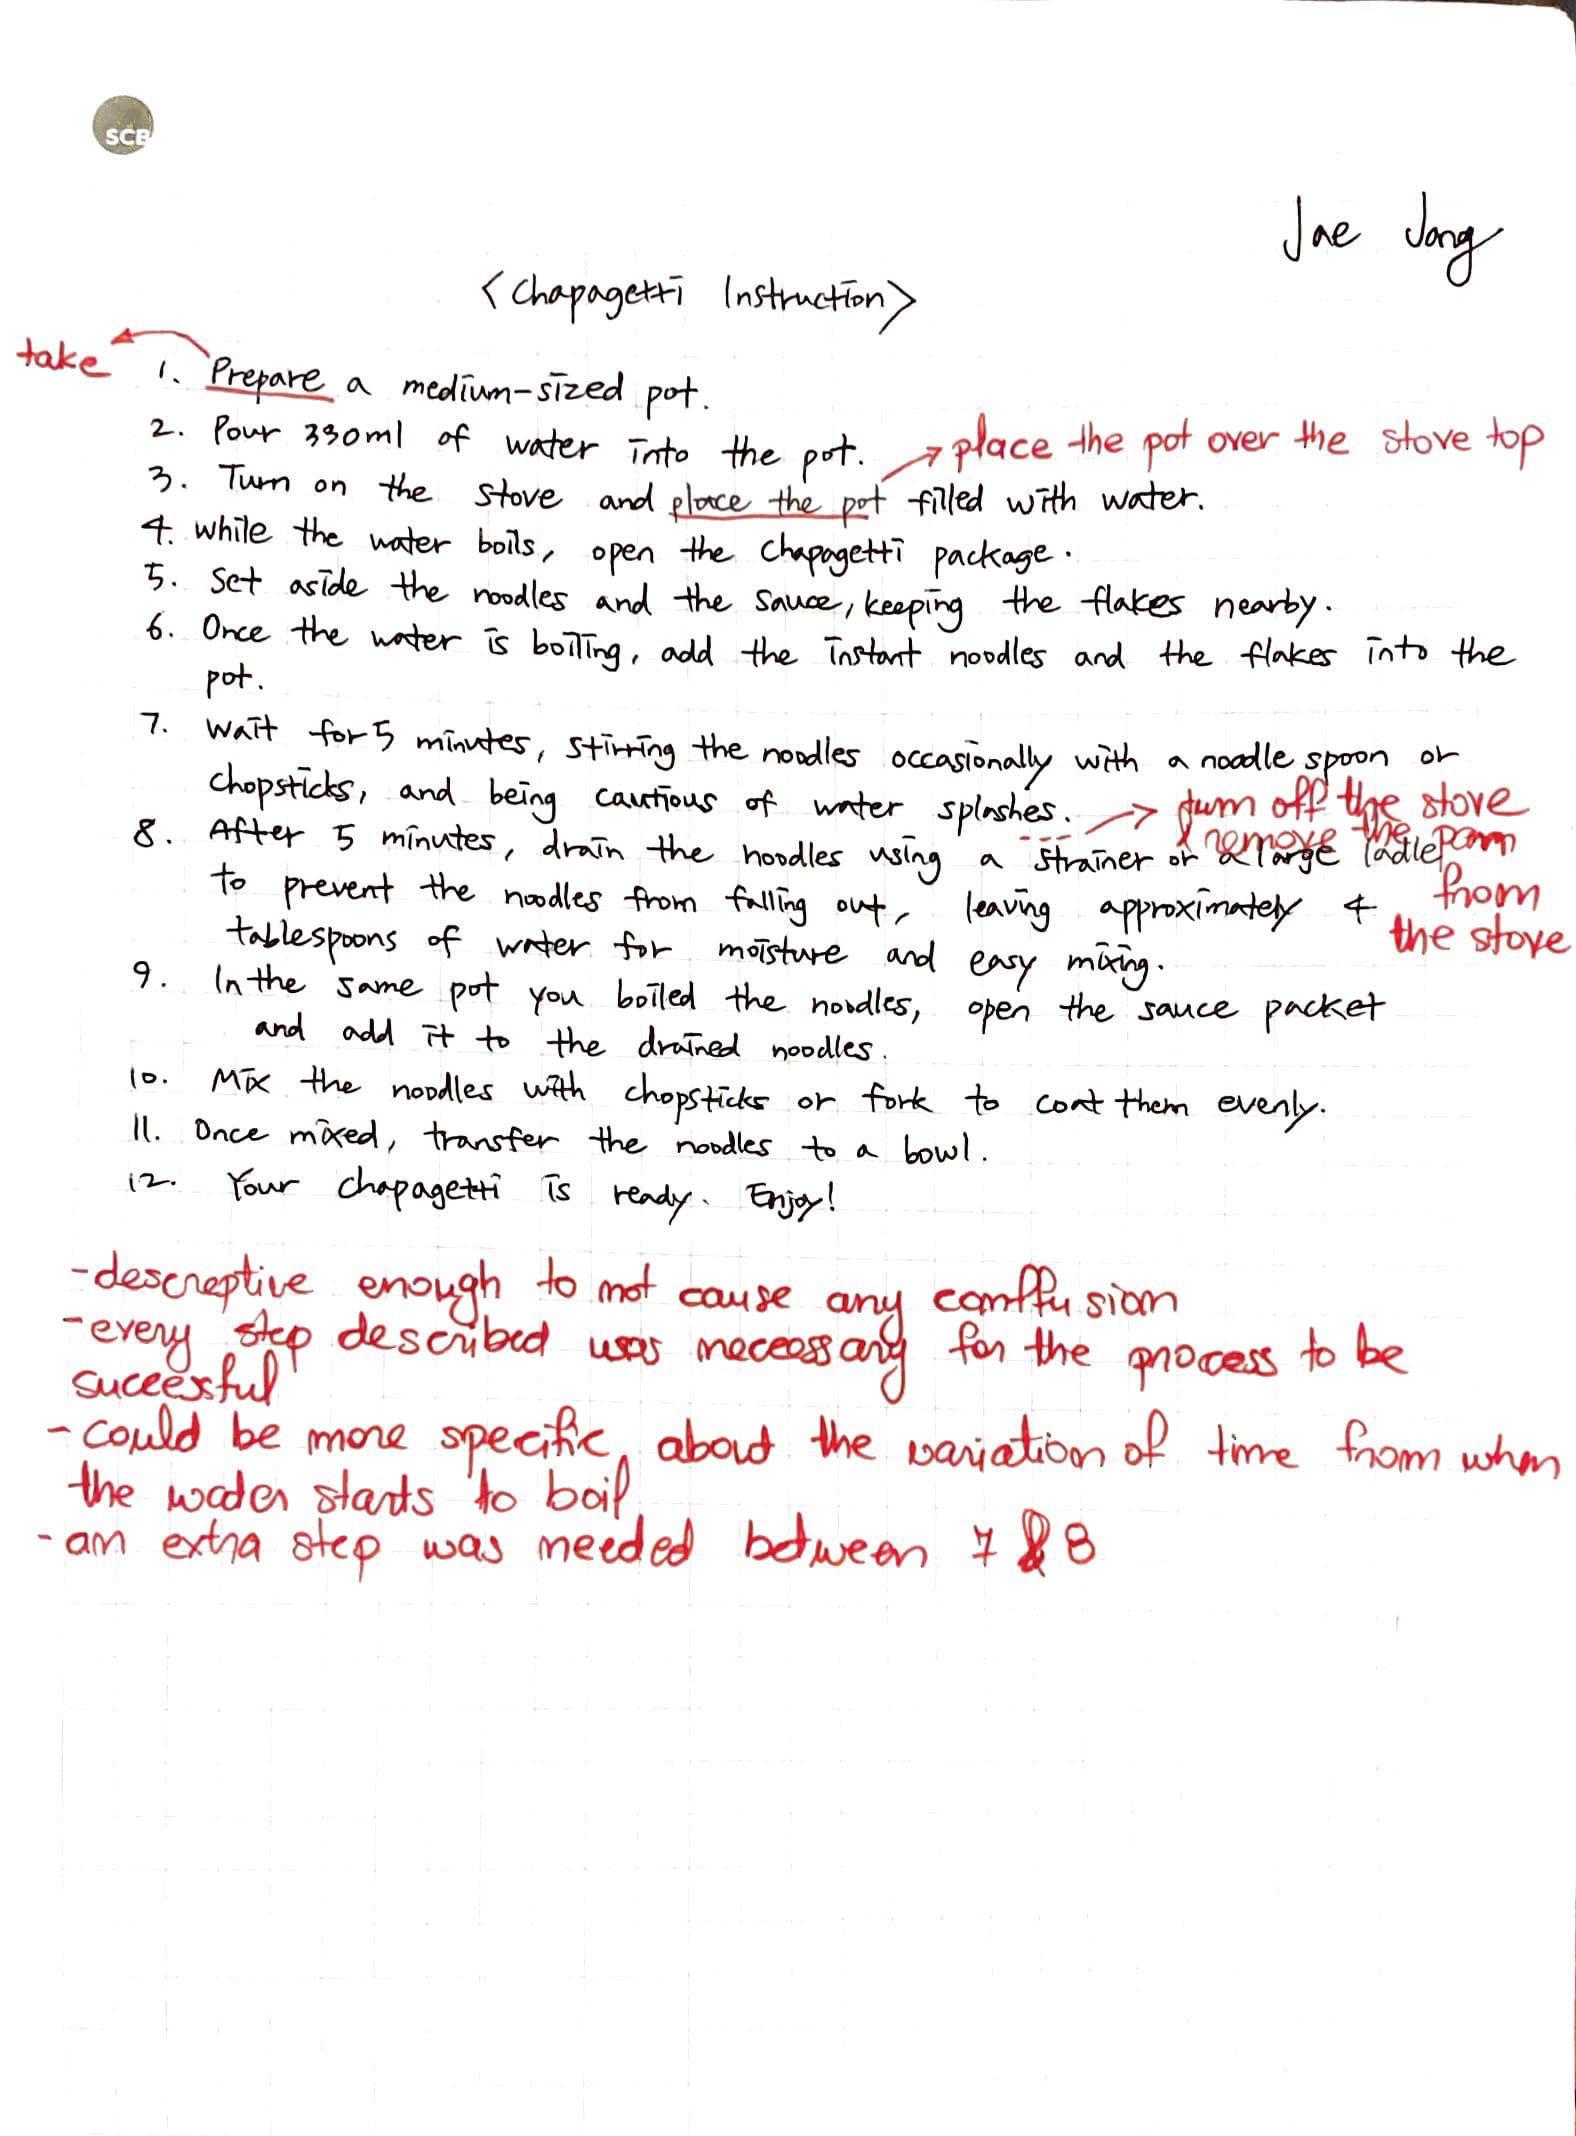 SCB
Jae Jang
<Chapagetti Instruction>
take
1. Prepare a medium-sized pot.
2. Pour 330ml of water into the pot.
place the pot over the stove top
3. Turn on the stove and place the pot filled with water.
4. while the water boils, open the chapagetti package.
5. Set aside the noodles and the sauce, keeping the flakes nearby.
6. Once the water is boiling, add the instant noodles and the flakes into the
pot.
7. Wait for 5 minutes, stirring the noodles occasionally with a noodle spoon or
chopsticks, and being cautious of water splashes.
turn off the stove
& remove the pam
from
the stove
8. After 5 minutes, drain the noodles using a strainer or a large ladle
to prevent the noodles from falling out, leaving approximately 4
tablespoons of water for moisture and easy mixing.
9. In the same pot you boiled the noodles, open the sauce packet
and add it to the drained noodles.
10. Mix the noodles with chopsticks or fork to coat them evenly.
11. Once mixed, transfer the noodles to a bowl.
12. Your chapagetti is ready. Enjoy!
-descreptive enough to not cause any conffusion
-every step described was necessary for the process to be
successful
-could be more specific about the variation of time from when
the water starts to boil
-an extra step was needed between 7 & 8